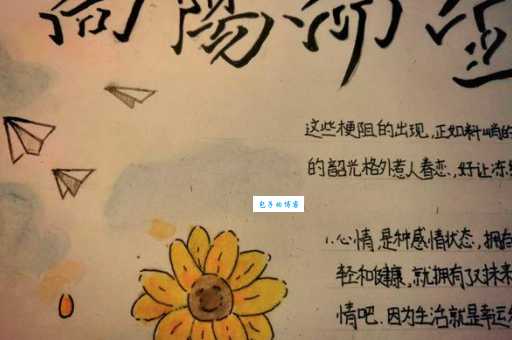 向陽而生
这些梗阻的出现,正如料峭的
的韶光格外惹人眷恋,好让冻
包子的博客
1.心情,是种感情状态,拥有
轻和健康,就拥有了对未来
情吧.因为生活就是幸运